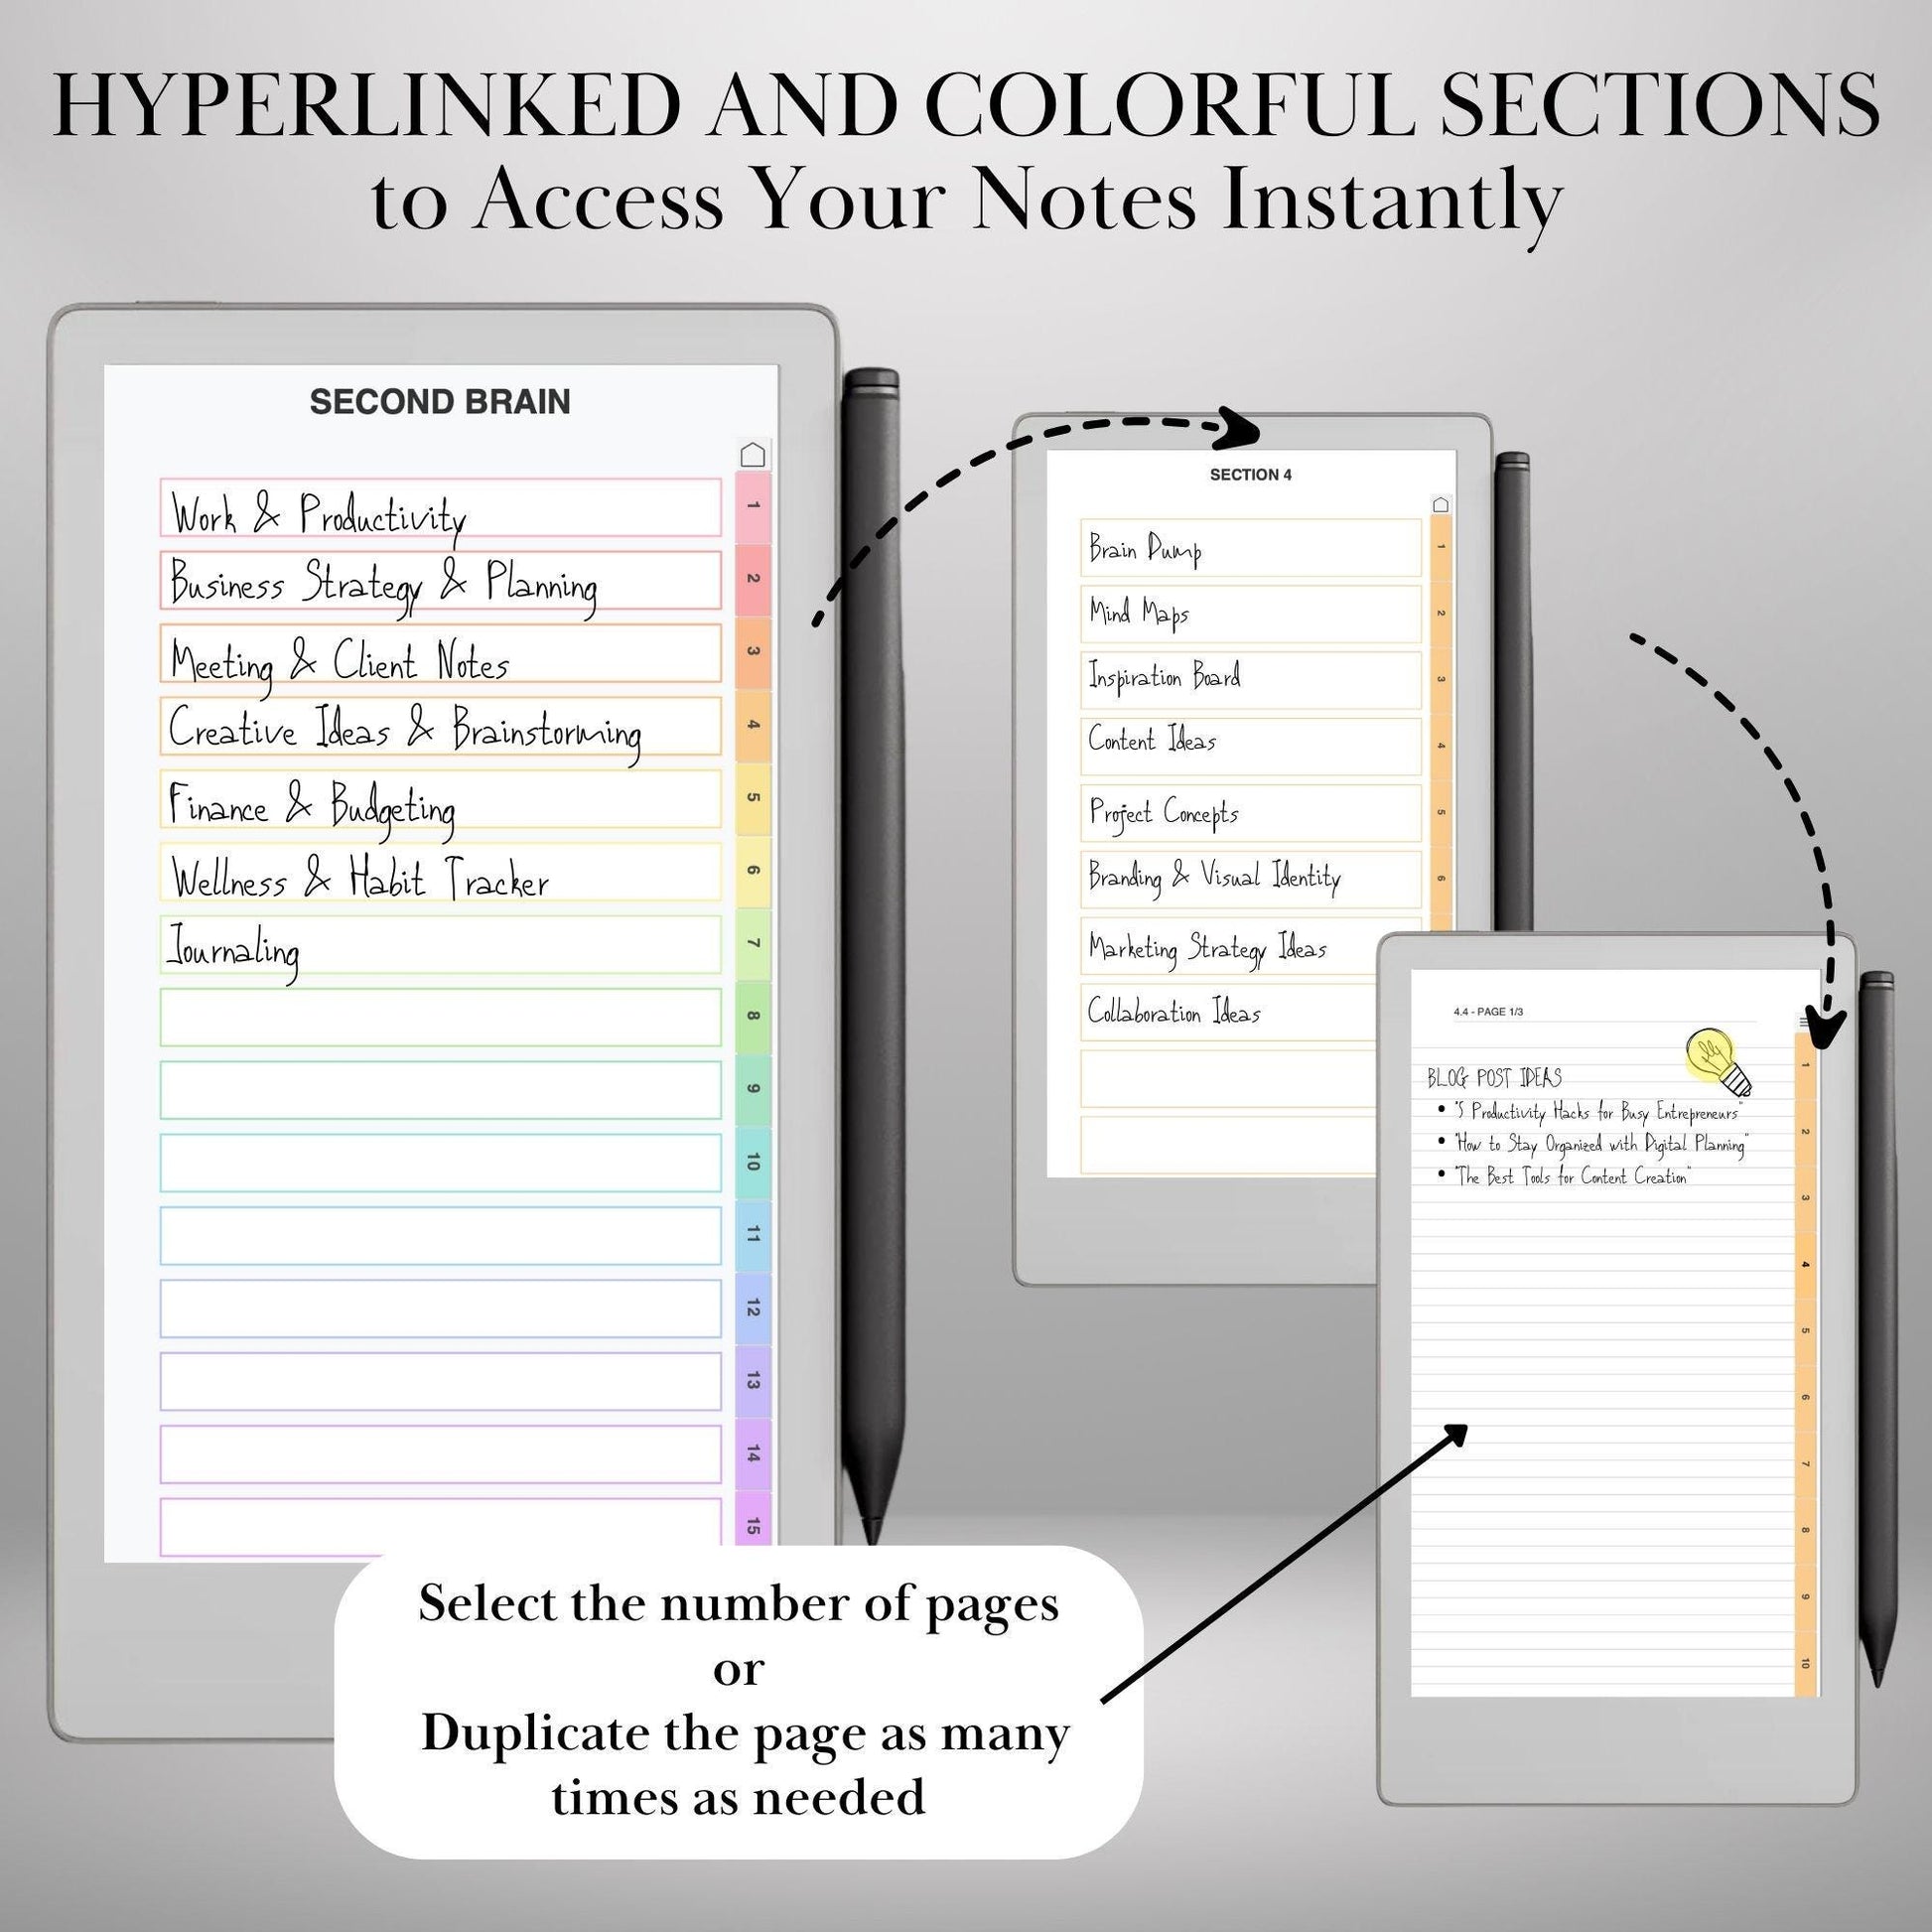 HYPERLINKED AND COLORFUL SECTIONS
to Access Your Notes Instantly
SECOND BRAIN
Work & Productivity
1
Business Strategy & Planning
2
Meeting & Client Notes
3
Creative Ideas & Brainstorming
4
Finance & Budgeting
5
Wellness & Habit Tracker
6
Journaling
7
8
9
10
11
12
13
14
15
SECTION 4
Brain Dump
1
Mind Maps
2
Inspiration Board
3
Content Ideas
4
Project Concepts
5
Branding & Visual Identity
6
Marketing Strategy Ideas
Collaboration Ideas
4.4 - PAGE 1/3
BLOG POST IDEAS
• "5 Productivity Hacks for Busy Entrepreneurs"
• "How to Stay Organized with Digital Planning"
• "The Best Tools for Content Creation"
1
2
3
4
5
6
7
8
9
10
Select the number of pages
or
Duplicate the page as many
times as needed